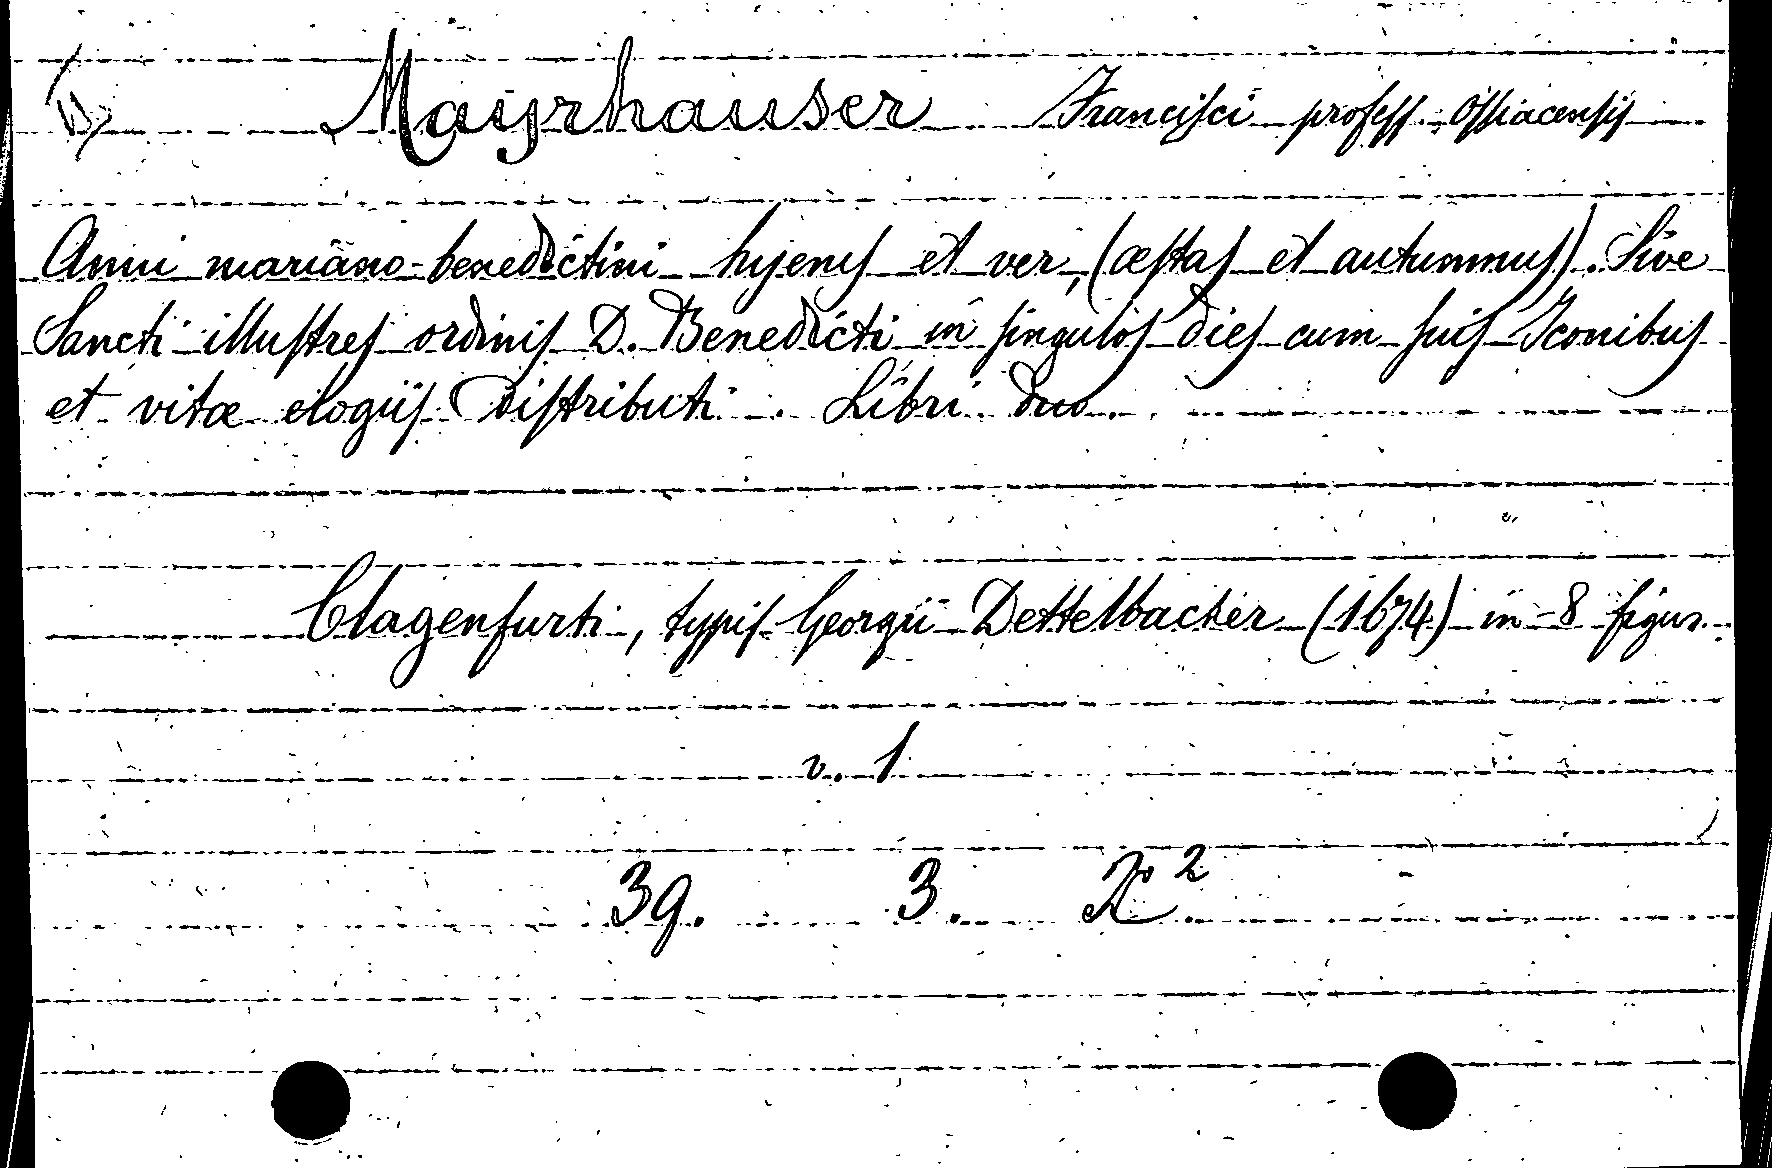 Mayrhauser Francisci profess. Ossiacensis
Anni mariano-benedictini hyems et ver, (æstas et autumnus). Sive
Sancti illustres ordinis D. Benedicti in singulos dies cum suis Iconibus
et vitæ elogiis distributi. Libri duo.
Clagenfurti, typis Georgii Dettelbacher (1674) in-8 figur.
v. 1
39. 3. Z²